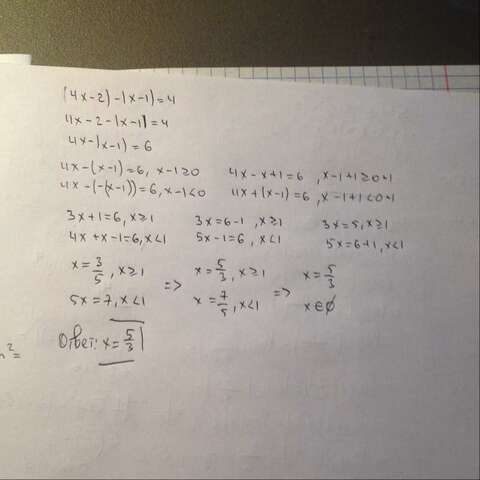 (4x-2)-|x-1|=4
4x-2-|x-1|=4
4x-|x-1|=6
4x-(x-1)=6, x-1≥0    4x-x+1=6, x-1+1≥0+1
4x-(-(x-1))=6, x-1<0    4x+(x-1)=6, x-1+1<0+1
3x+1=6, x≥1    3x=6-1, x≥1    3x=5, x≥1
4x+x-1=6, x<1    5x-1=6, x<1    5x=6+1, x<1
x=3/5, x≥1 => x=5/3, x≥1 => x=5/3
5x=7, x<1    x=7/5, x<1    x∈∅
Ответ: x=5/3
²=